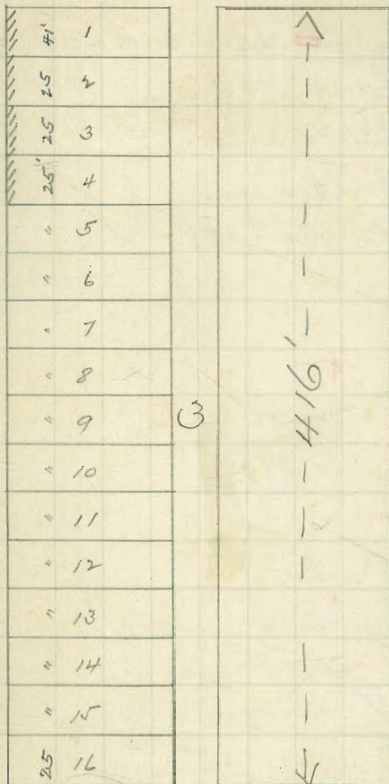 41' 1
25 2
25 3
25' 4
" 5
" 6
" 7
" 8
" 9
" 10
" 11
" 12
" 13
" 14
" 15
25 16
3
416'